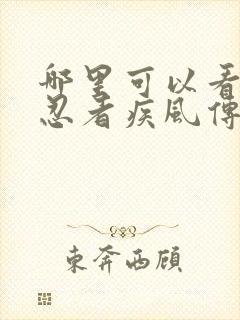 哪里可以看
忍者疾風傳
東奔西顧